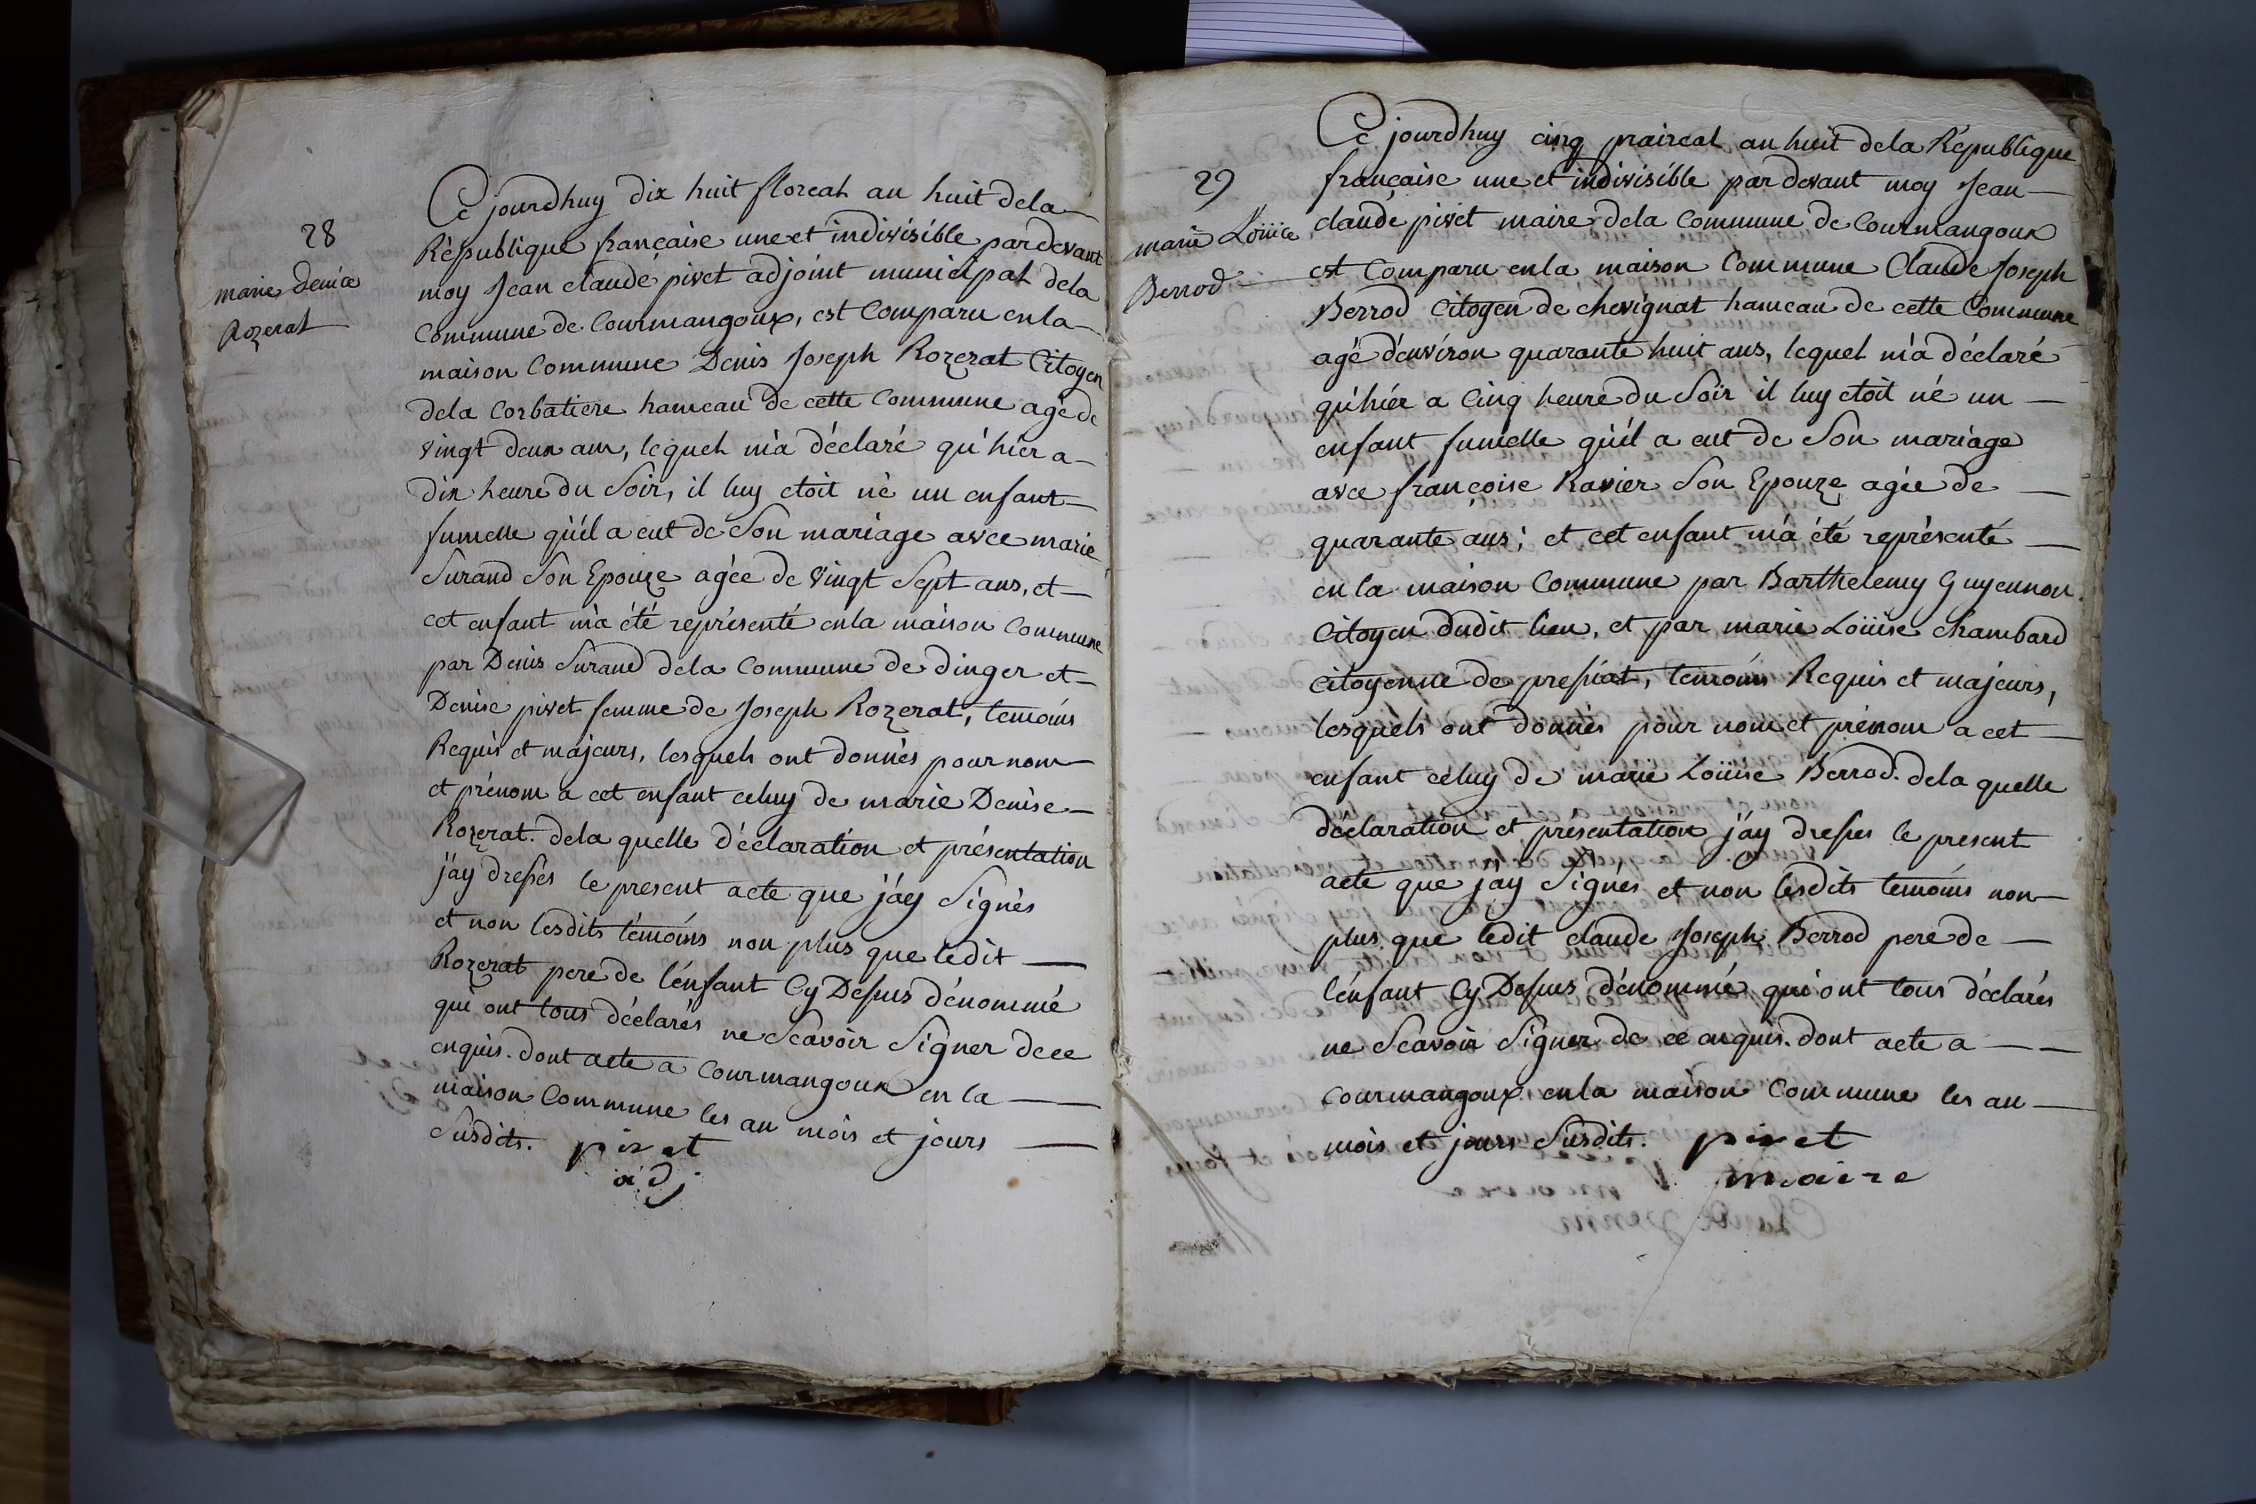 28
marie denice
Rozerat
Ce jourdhuy dix huit floreal an huit dela
République française une et indivisible pardevant
moy Jean claude pivet adjoint municipal dela
Commune de Courmangoux, est Comparu enla
maison Commune Denis Joseph Rozerat Citoyen
dela Corbatiere hameau de cette Commune agé de
vingt deux ans, lequel m'a déclaré qu'hier a
dix heure du Soir, il luy etoit né un enfant
fumelle qu'il a eut de Son mariage avec marie
Surand Son Epouze agée de vingt Sept ans, et
cet enfant m'a été représenté enla maison Commune
par Denis Surand dela Commune de dinger et
Denise pivet femme de Joseph Rozerat, temoins
Requis et majeurs, lesquels ont donnés pour nom
et prénom a cet enfant celuy de marie Denise
Rozerat. dela quelle déclaration et présentation
j'ay dressés le present acte que j'ay Signés
et non lesdits témoins non plus que ledit
Rozerat pere de l'enfant Cy Dessus dénommé
qui ont tous déclarés ne Scavoir Signer dece
enquis. dont acte a Courmangoux en la
maison Commune les an mois et jours
Susdits. pivet
adj
29
marie Loüice
Berrod
Ce jourdhuy cinq praireal an huit dela République
française une et indivisible par devant moy Jean
claude pivet maire dela Commune de Courmangoux
est Comparu enla maison Commune Claude Joseph
Berrod Citoyen de chevignat hameau de cette Commune
agé d'environ quarante huit ans, lequel m'a déclaré
qu'hiér a Cinq heure du Soir il luy etoit né un
enfant fumelle qu'il a eut de Son mariage
avec françoise Ravier Son Epouze agée de
quarante ans; et cet enfant m'a été représenté
en la maison Commune par Barthelemy Guyennon
Citoyen dudit lieu, et par marie Loüise chambard
citoyenne de pressiat, temoins Requis et majeurs,
lesquels ont donnés pour nom et prénom a cet
enfant celuy de marie Loüise Berrod. dela quelle
déclaration et présentation j'ay dressés le present
acte que j'ay Signés et non lesdits temoins non
plus que ledit claude Joseph Berrod pere de
l'enfant Cy Dessus dénommé qui ont tous déclarés
ne Scavoir Signer de ce enquis. dont acte a
courmangoux enla maison Commune les an
mois et jours Susdits. pivet
maire